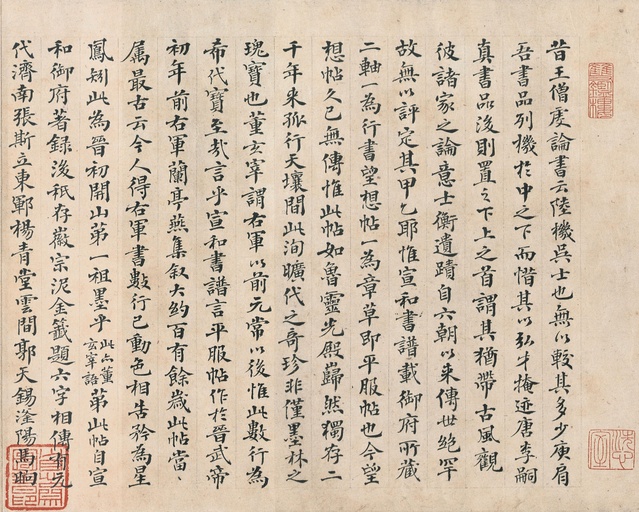 昔王僧虔論書云陸機吳士也無以較其多少庾肩
吾書品列機於中之下而惜其以弘才掩迹唐李嗣
真書品後則置之下上之首謂其猶帶古風觀
彼諸家之論意士衡遺蹟自六朝以來傳世絕罕
故無以評定其甲乙耶惟宣和書譜載御府所藏
二軸一為行書望想帖一為章草即平服帖也今望
想帖久已無傳惟此帖如魯靈光殿巋然獨存二
千年來孤行天壤間此洵曠代之奇珍非僅墨林之
瑰寶也董玄宰謂右軍以前元常以後惟此數行為
希代寶至哉言乎宣和書譜言平服帖作於晉武帝
初年前右軍蘭亭燕集叙大約百有餘歲此帖當
属最古云今人得右軍書數行已動色相告矜為星
鳳矧此為晉初開山第一祖墨乎此六董玄宰語第此帖自宣
和御府著錄後秖存徽宗泥金籤題六字相傳有元
代濟南張斯立東鄆楊青堂雲間郭天錫滏陽馬昫